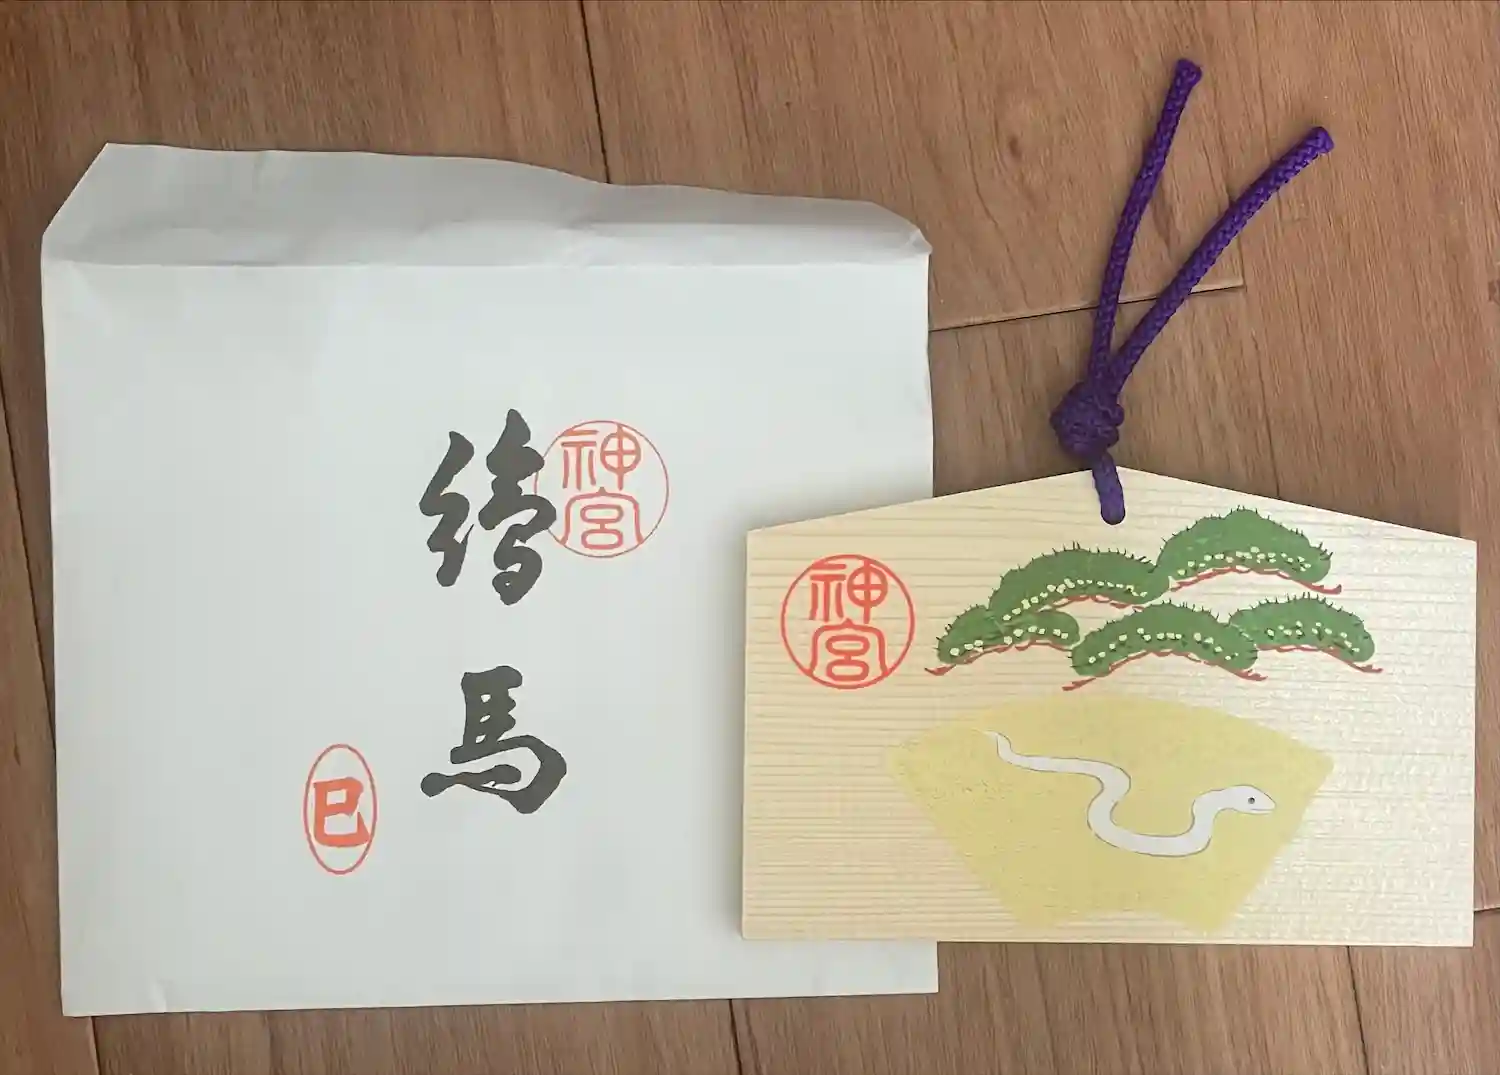 繪馬
神宮
巳
神宮